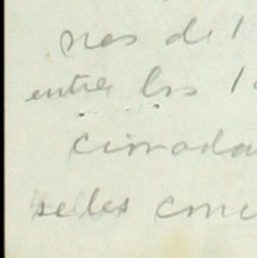 nes de l
entre los 1
cionada
se les conc